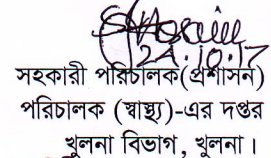 24.10.17
সহকারী পরিচালক(প্রশাসন)
পরিচালক (স্বাস্থ্য)-এর দপ্তর
খুলনা বিভাগ, খুলনা।